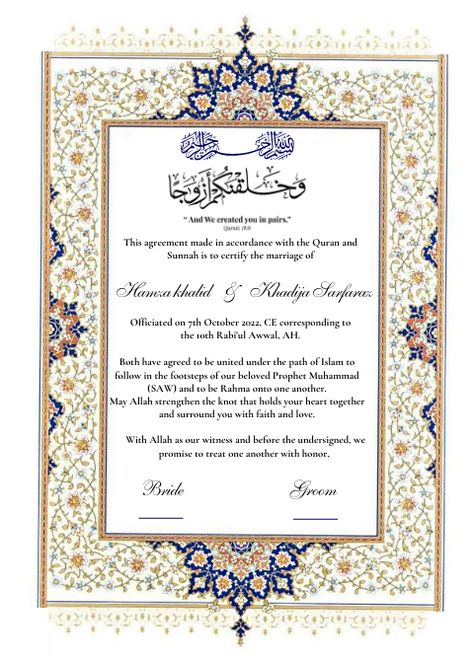 بسم الله الرحمن الرحيم
وخلقنكم أزوجا
“And We created you in pairs.”
Quran: 78:8
This agreement made in accordance with the Quran and
Sunnah is to certify the marriage of
Hamza khalid & Khadija Sarfaraz
Officiated on 7th October 2022, CE corresponding to
the 10th Rabi'ul Awwal, AH.
Both have agreed to be united under the path of Islam to
follow in the footsteps of our beloved Prophet Muhammad
(SAW) and to be Rahma onto one another.
May Allah strengthen the knot that holds your heart together
and surround you with faith and love.
With Allah as our witness and before the undersigned, we
promise to treat one another with honor.
Bride Groom